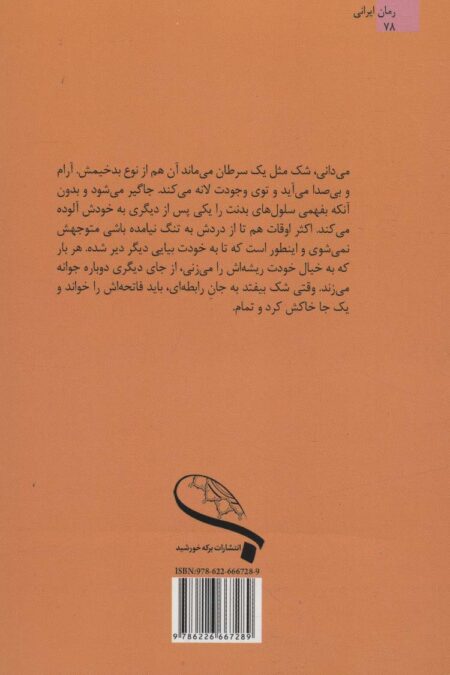 رمان ایرانی
۷۸
می‌دانی، شک مثل یک سرطان می‌ماند آن هم از نوع بدخیمش. آرام
و بی‌صدا می‌آید و توی وجودت لانه می‌کند. جاگیر می‌شود و بدون
آنکه بفهمی سلول‌های بدنت را یکی پس از دیگری به خودش آلوده
می‌کند. اکثر اوقات هم تا از دردش به تنگ نیامده باشی متوجهش
نمی‌شوی و اینطور است که تا به خودت بیایی دیگر دیر شده. هر بار
که به خیال خودت ریشه‌اش را می‌زنی، از جای دیگری دوباره جوانه
می‌زند. وقتی شک بیفتد به جانِ رابطه‌ای، باید فاتحه‌اش را خواند و
یک جا خاکش کرد و تمام.
انتشارات برکه خورشید
ISBN:978-622-666728-9
9 786226 667289